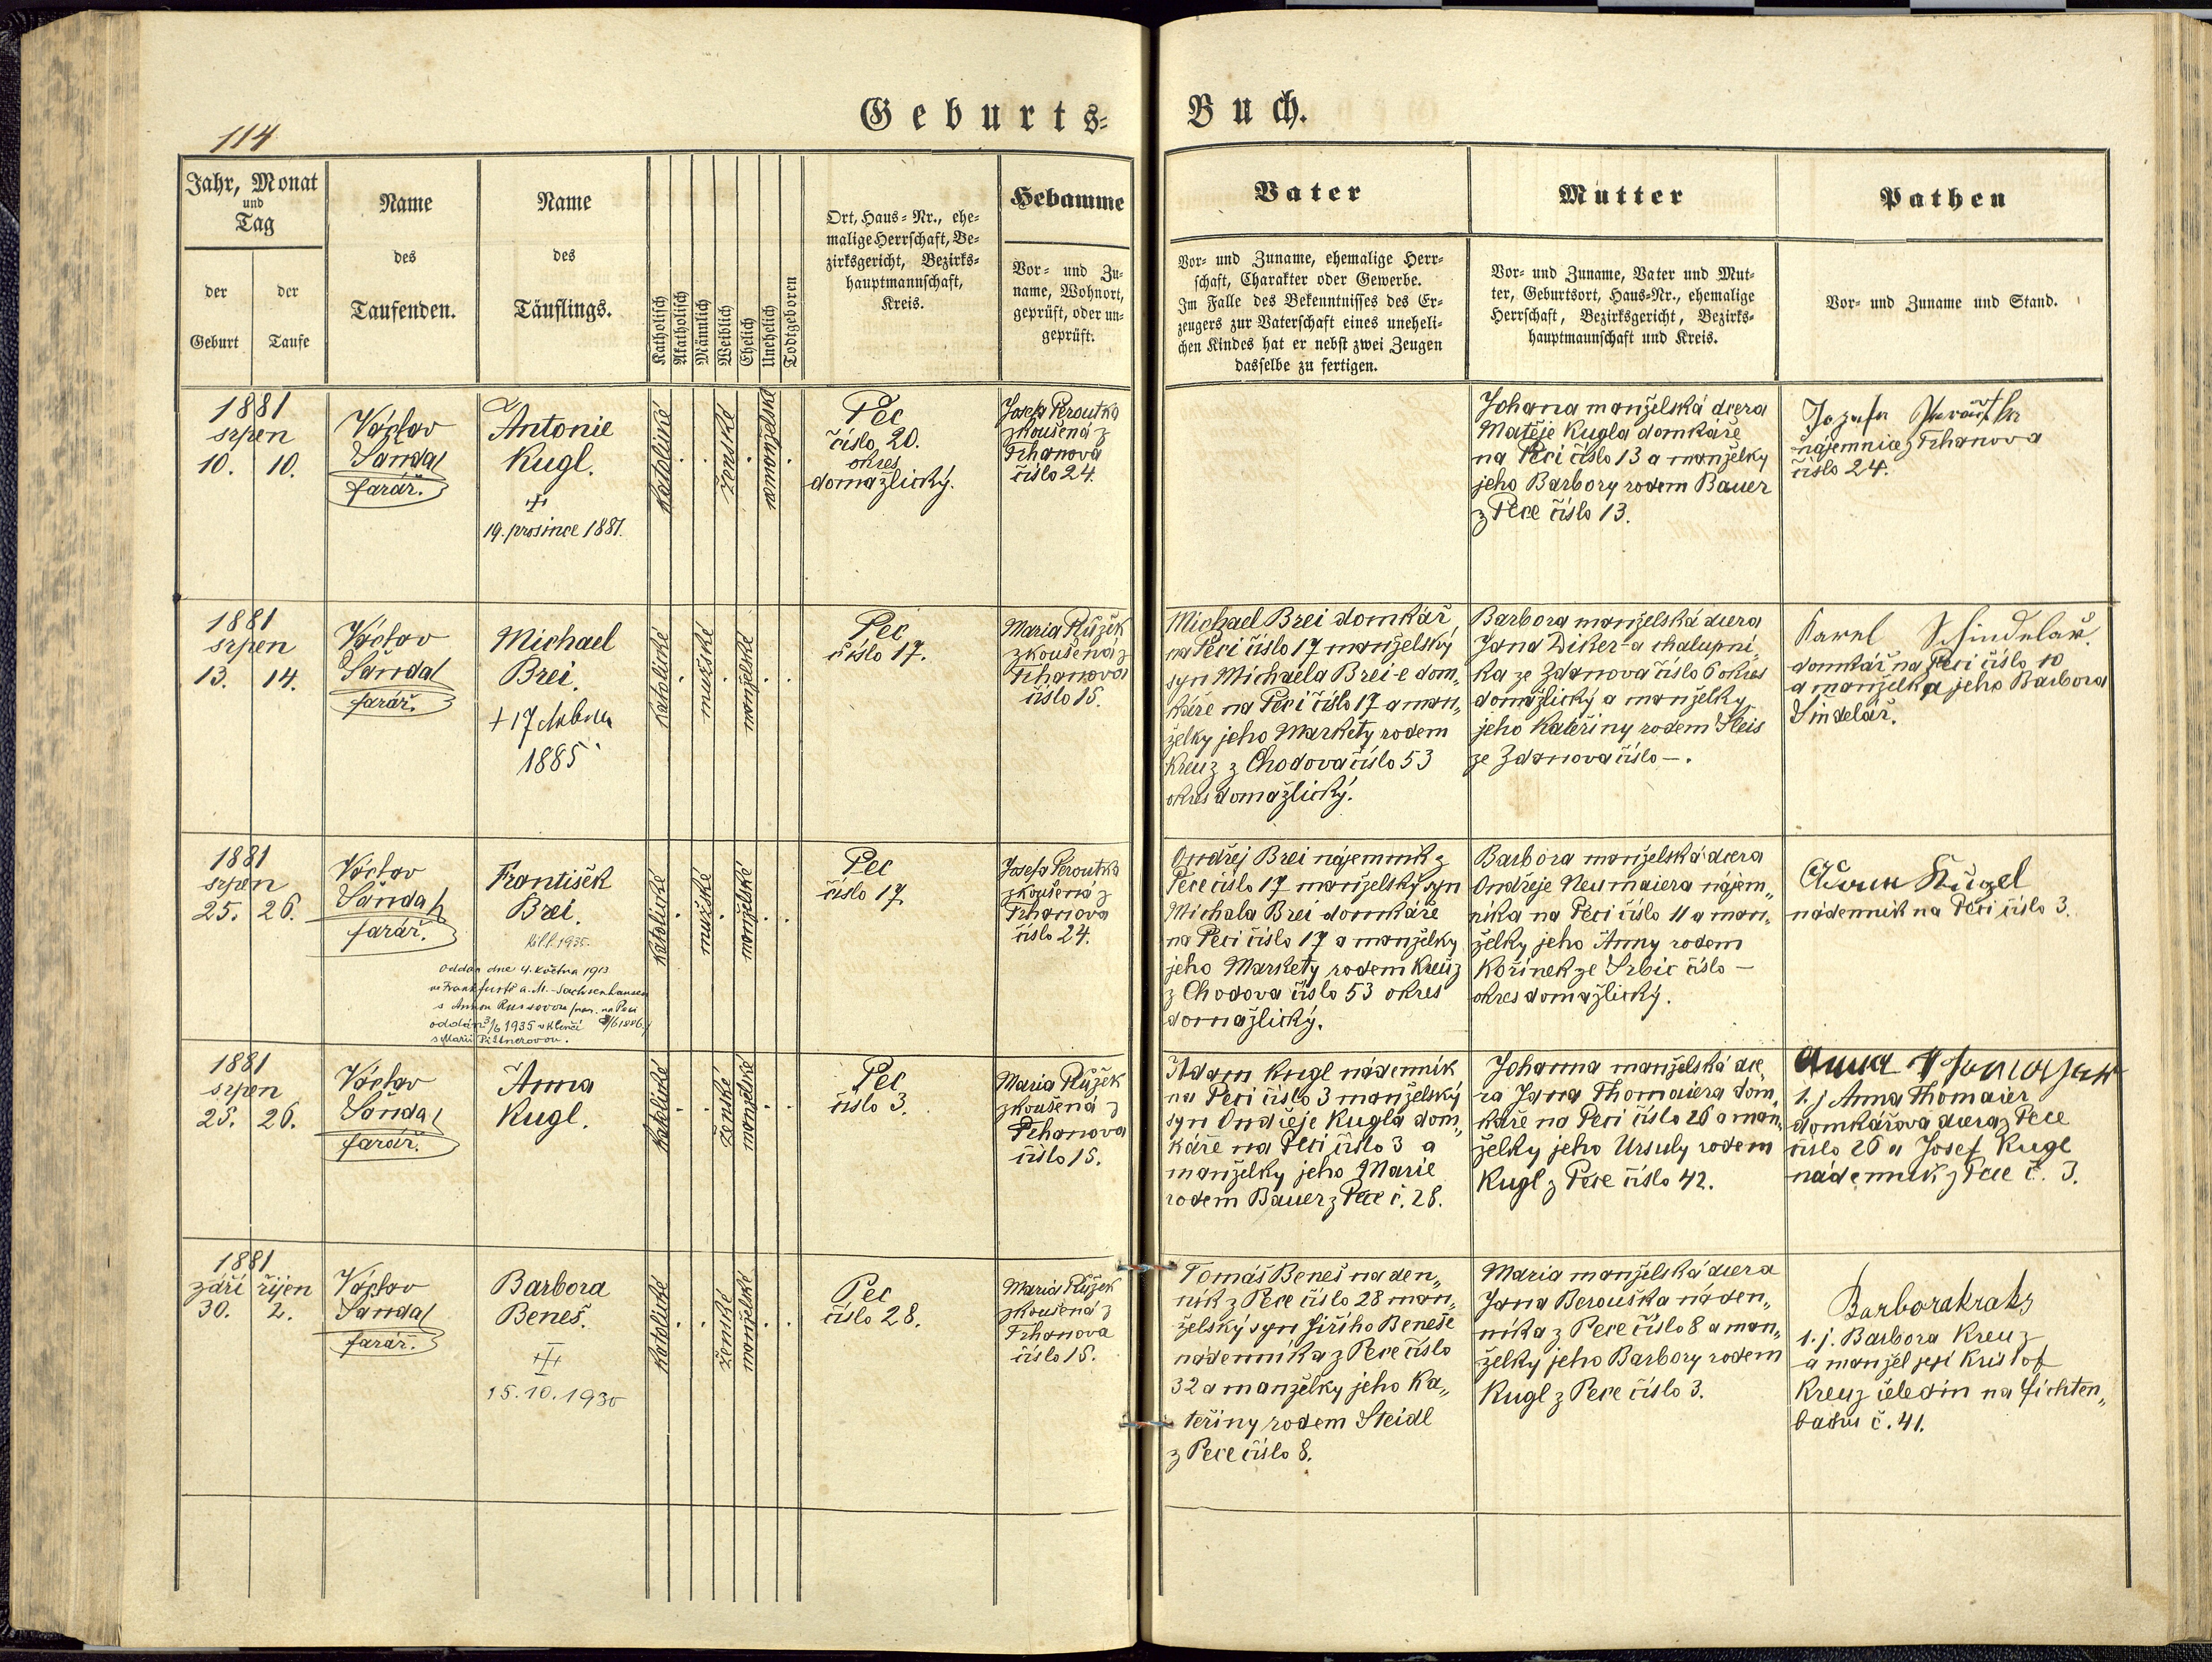 Geburts-Buch.
114
Jahr, Monat
und
Tag
der
Geburt
der
Taufe
Name
des
Taufenden.
Name
des
Täuflings.
Katholisch
Akatholisch
Männlich
Weiblich
Ehelich
Unehelich
Todtgeboren
Ort, Haus-Nr., ehe-
malige Herrschaft, Be-
zirksgericht, Bezirks-
hauptmannschaft,
Kreis.
Hebamme
Vor- und Zu-
name, Wohnort,
geprüft, oder un-
geprüft.
Vater
Vor- und Zuname, ehemalige Herr-
schaft, Charakter oder Gewerbe.
Im Falle des Bekenntnisses des Er-
zeugers zur Vaterschaft eines uneheli-
chen Kindes hat er nebst zwei Zeugen
dasselbe zu fertigen.
Mutter
Vor- und Zuname, Vater und Mut-
ter, Geburtsort, Haus-Nr., ehemalige
Herrschaft, Bezirksgericht, Bezirks-
hauptmannschaft und Kreis.
Pathen
Vor- und Zuname und Stand.
1881
srpen
10. 10.
Václav
Šanda
farář.
Antonie
Kugl.
19. prosince 1881.
Katolické
ženské
nemanželské
Pec
číslo 20.
okres
domažlický.
Josefa Peroutka
zkoušená z
Trhanova
číslo 24.
Johana manželská dcera
Matěje Kugla domkáře
na Peci číslo 13 a manželky
jeho Barbory rodem Bauer
z Pece číslo 13.
nájemnice z Trhanova
číslo 24.
1881
srpen
13. 14.
Václav
Šanda
farář.
Michael
Brei.
+ 17
1885
Katolické
mužské
manželské
Pec
číslo 17.
Maria Růžek
zkoušená z
Trhanova
číslo 15.
Michael Brei domkář
na Peci číslo 17 manželský
syn Michaela Brei-e dom„
káře na Peci číslo 17 a man„
želky jeho Markéty rodem
Kreuz z Chodova číslo 53
okres domažlický.
Barbora manželská dcera
Jana Diker-a chalupní„
ka ze Ždanova číslo 6 okres
domažlický a manželky
jeho Kateřiny rodem Fleis
ze Ždanova číslo —.
Karel Schindelář
domkář na Peci číslo 10
a manželka jeho Barbora
Šindelář.
1881
srpen
25. 26.
Václav
Šanda
farář.
František
Brei.
oddán dne 4. května 1913
ve Frankfurtě a. M. - Sachsenhausen
s Annou nar. na Peci
oddán 3/6 1935 v Klenčí
s Marií Pittnerovou.
Katolické
mužské
manželské
Pec
číslo 17.
Josefa Peroutka
zkoušená z
Trhanova
číslo 24.
Ondřej Brei nájemník z
Pece číslo 17 manželský syn
Michala Brei domkáře
na Peci číslo 17 a manželky
jeho Markety rodem Kreuz
z Chodova číslo 53 okres
domažlický.
Barbora manželská dcera
Ondřeje Neumaiera nájem„
níka na Peci číslo 11 a man„
želky jeho Anny rodem
Kořínek ze Srbic číslo —
okres domažlický.
Kugel
nádenník na Peci číslo 3.
1881
srpen
25. 26.
Václav
Šanda
farář.
Anna
Kugl.
Katolické
ženské
manželské
Pec
číslo 3.
Maria Růžek
zkoušená z
Trhanova
číslo 15.
Adam Kugl nádenník
na Peci číslo 3 manželský
syn Ondřeje Kugla dom„
káře na Peci číslo 3 a
manželky jeho Marie
rodem Bauer z Pece č. 28.
Johanna manželská dce
ra Jana Thomaiera dom„
káře na Peci číslo 26 a man„
želky jeho Ursuly rodem
Kugl z Pece číslo 42.
Anna
1. j Anna Thomaier
domkářova dcera z Pece
číslo 26 a Josef Kugl
nádenník z Pece č. 3.
1881
září říjen
30. 2.
Václav
Šanda
farář.
Barbora
Beneš.
15. 10. 1930
Katolické
ženské
manželské
Pec
číslo 28.
Maria Růžek
zkoušená z
Trhanova
číslo 15.
Tomáš Beneš náden„
ník z Pece číslo 28 man„
želský syn Jiřího Beneše
nádenníka z Pece číslo
32 a manželky jeho Ka„
teřiny rodem Steidl
z Pece číslo 8.
Maria manželská dcera
Jana Berouška náden„
níka z Pece číslo 8 a man„
želky jeho Barbory rodem
Kugl z Pece číslo 3.
Barbora
1. j. Barbora Kreuz
a manžel její Krištof
Kreuz čeledín na Fichten„
bachu č. 41.